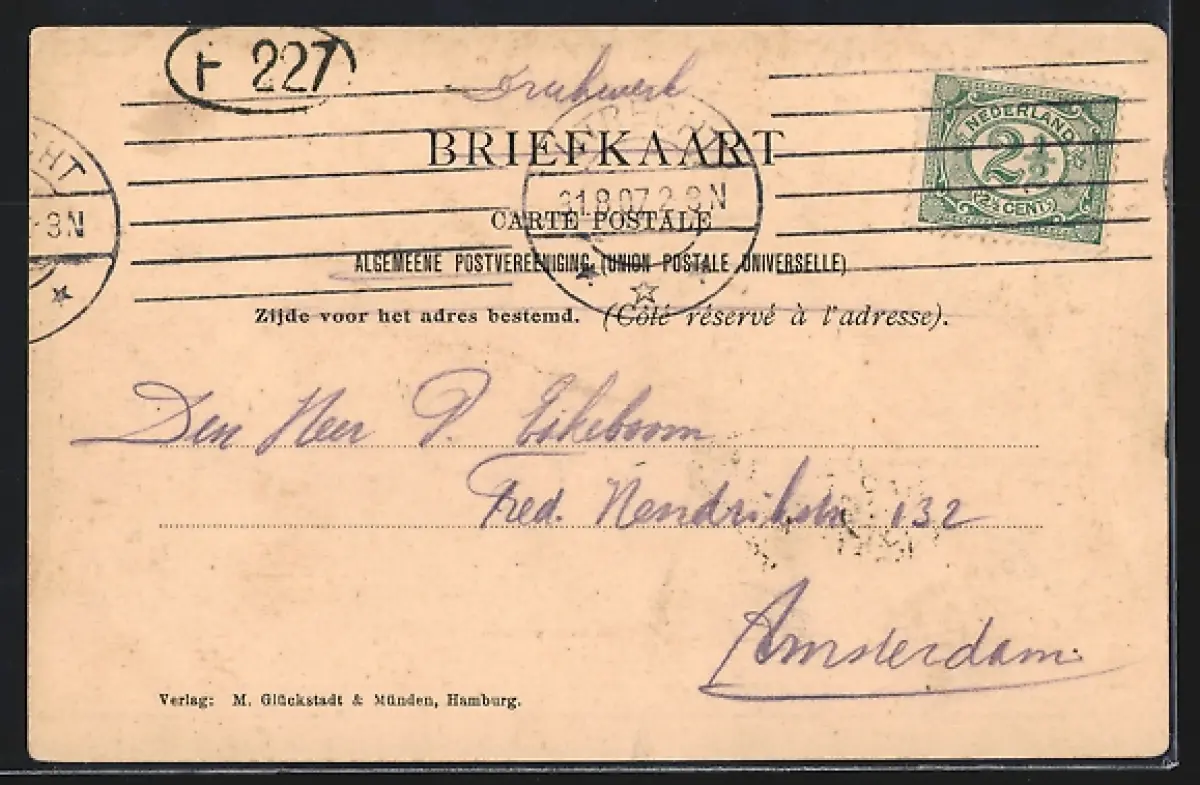 F 227
Drukwerk
BRIEFKAART
NEDERLAND
2½
(2½ CENT)
UTRECHT
31.8.07.2-3N
CHT
-3N
CARTE POSTALE
ALGEMEENE POSTVEREENIGING (UNION POSTALE UNIVERSELLE)
Zijde voor het adres bestemd. (Côté réservé à l'adresse).
Den Heer P. Eikeboom
Fred. Hendrikstr 132
Amsterdam
Verlag: M. Glückstadt & Münden, Hamburg.